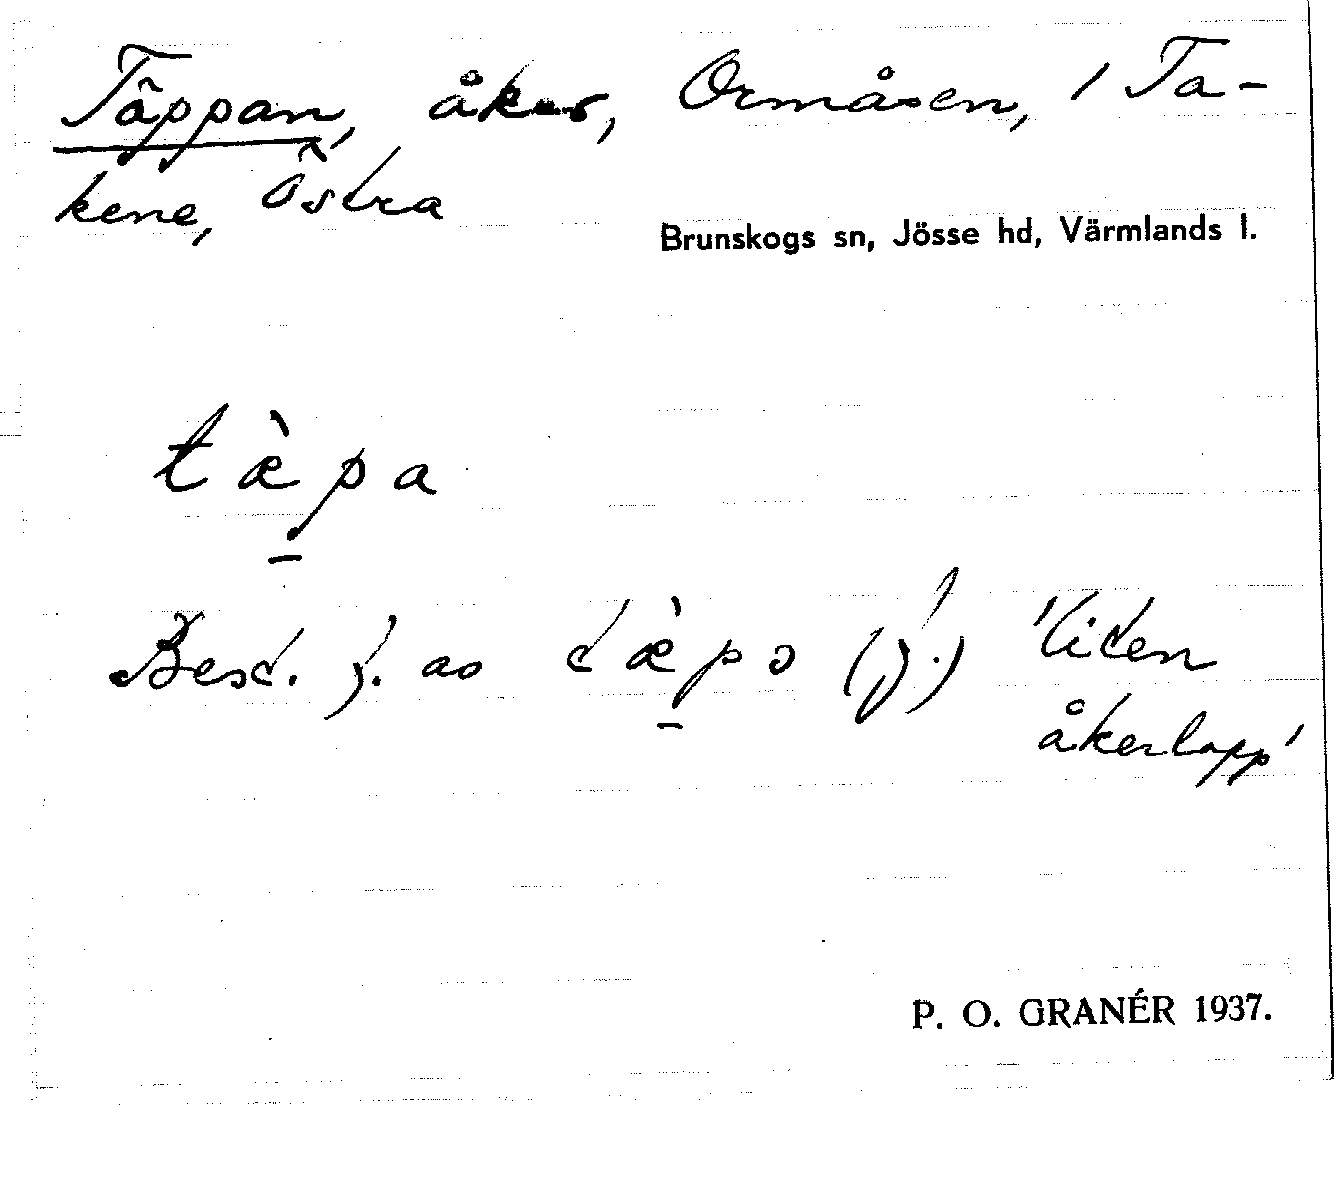 Täppan, åker, Ormåsen, 1 Ta-
kene, Östra
Brunskogs sn, Jösse hd, Värmlands l.
tæ̀pa
Best. f. av tæ̀pɔ (f.) 'liten
åkerlapp'
P. O. GRANÉR 1937.